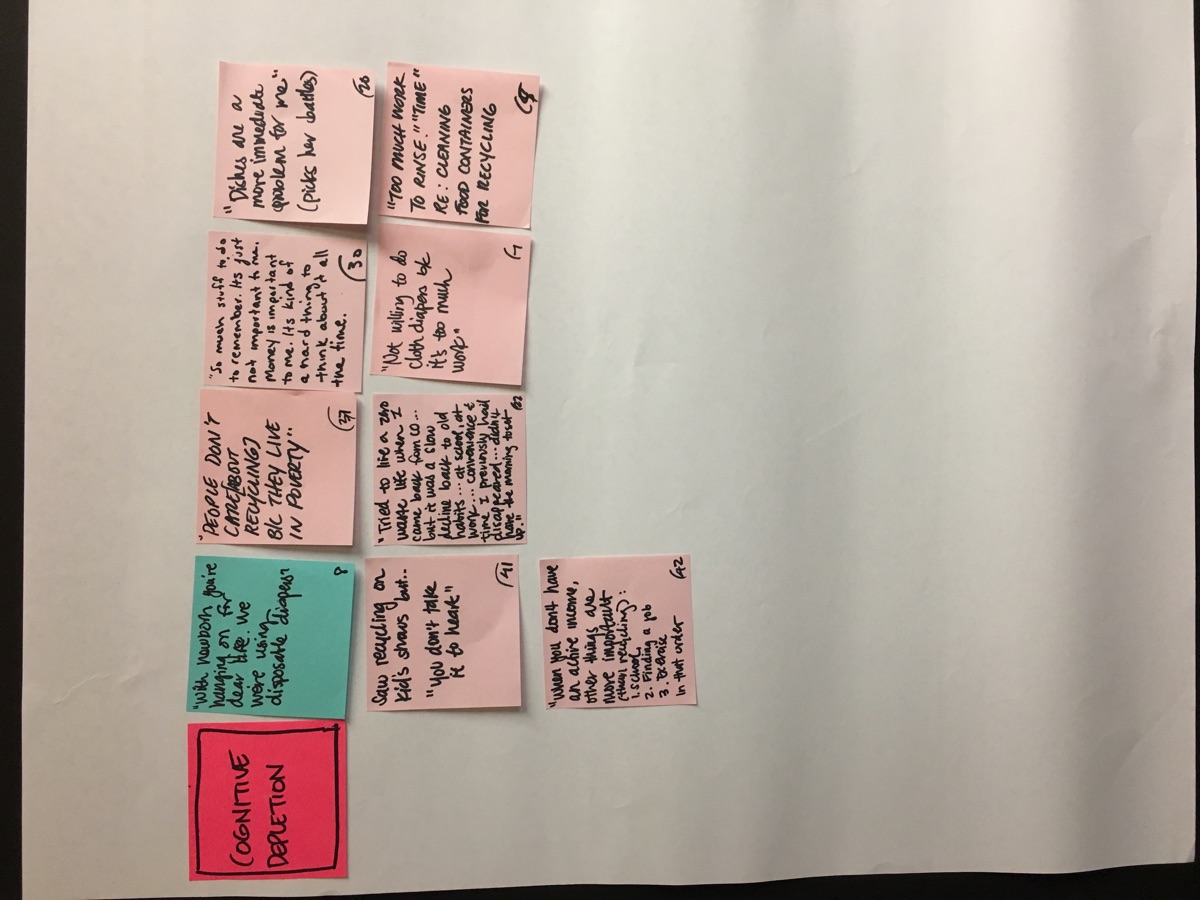 COGNITIVE
DEPLETION
"With newborn you're
hanging on for
dear life. We
were using
disposable diapers"
8
"PEOPLE DON'T
CARE (ABOUT
RECYCLING)
B/C THEY LIVE
IN POVERTY"
37
"So much stuff to do
to remember. Its just
not important to me.
Money is important
to me. Its kind of
a hard thing to
think about it all
the time.
30
"Dishes are a
more immediate
problem for me"
(picks her battles)
26
Saw recycling on
kids shows but..
"You don't take
it to heart"
41
"Tried to live a zero
waste life when I
came back from CO...
but it was a slow
decline back to old
habits... at school, at
work.... convenience &
time I previously had
disappeared... didn't
have the morning to set
up."
"Not willing to do
cloth diapers b/c
it's too much
work"
"TOO MUCH WORK
TO RINSE." "TIME"
RE: CLEANING
FOOD CONTAINERS
FOR RECYCLING
"When you don't have
an active income,
other things are
more important
(than recycling):
1. School
2. Finding a job
3. Exercise
In that order
42